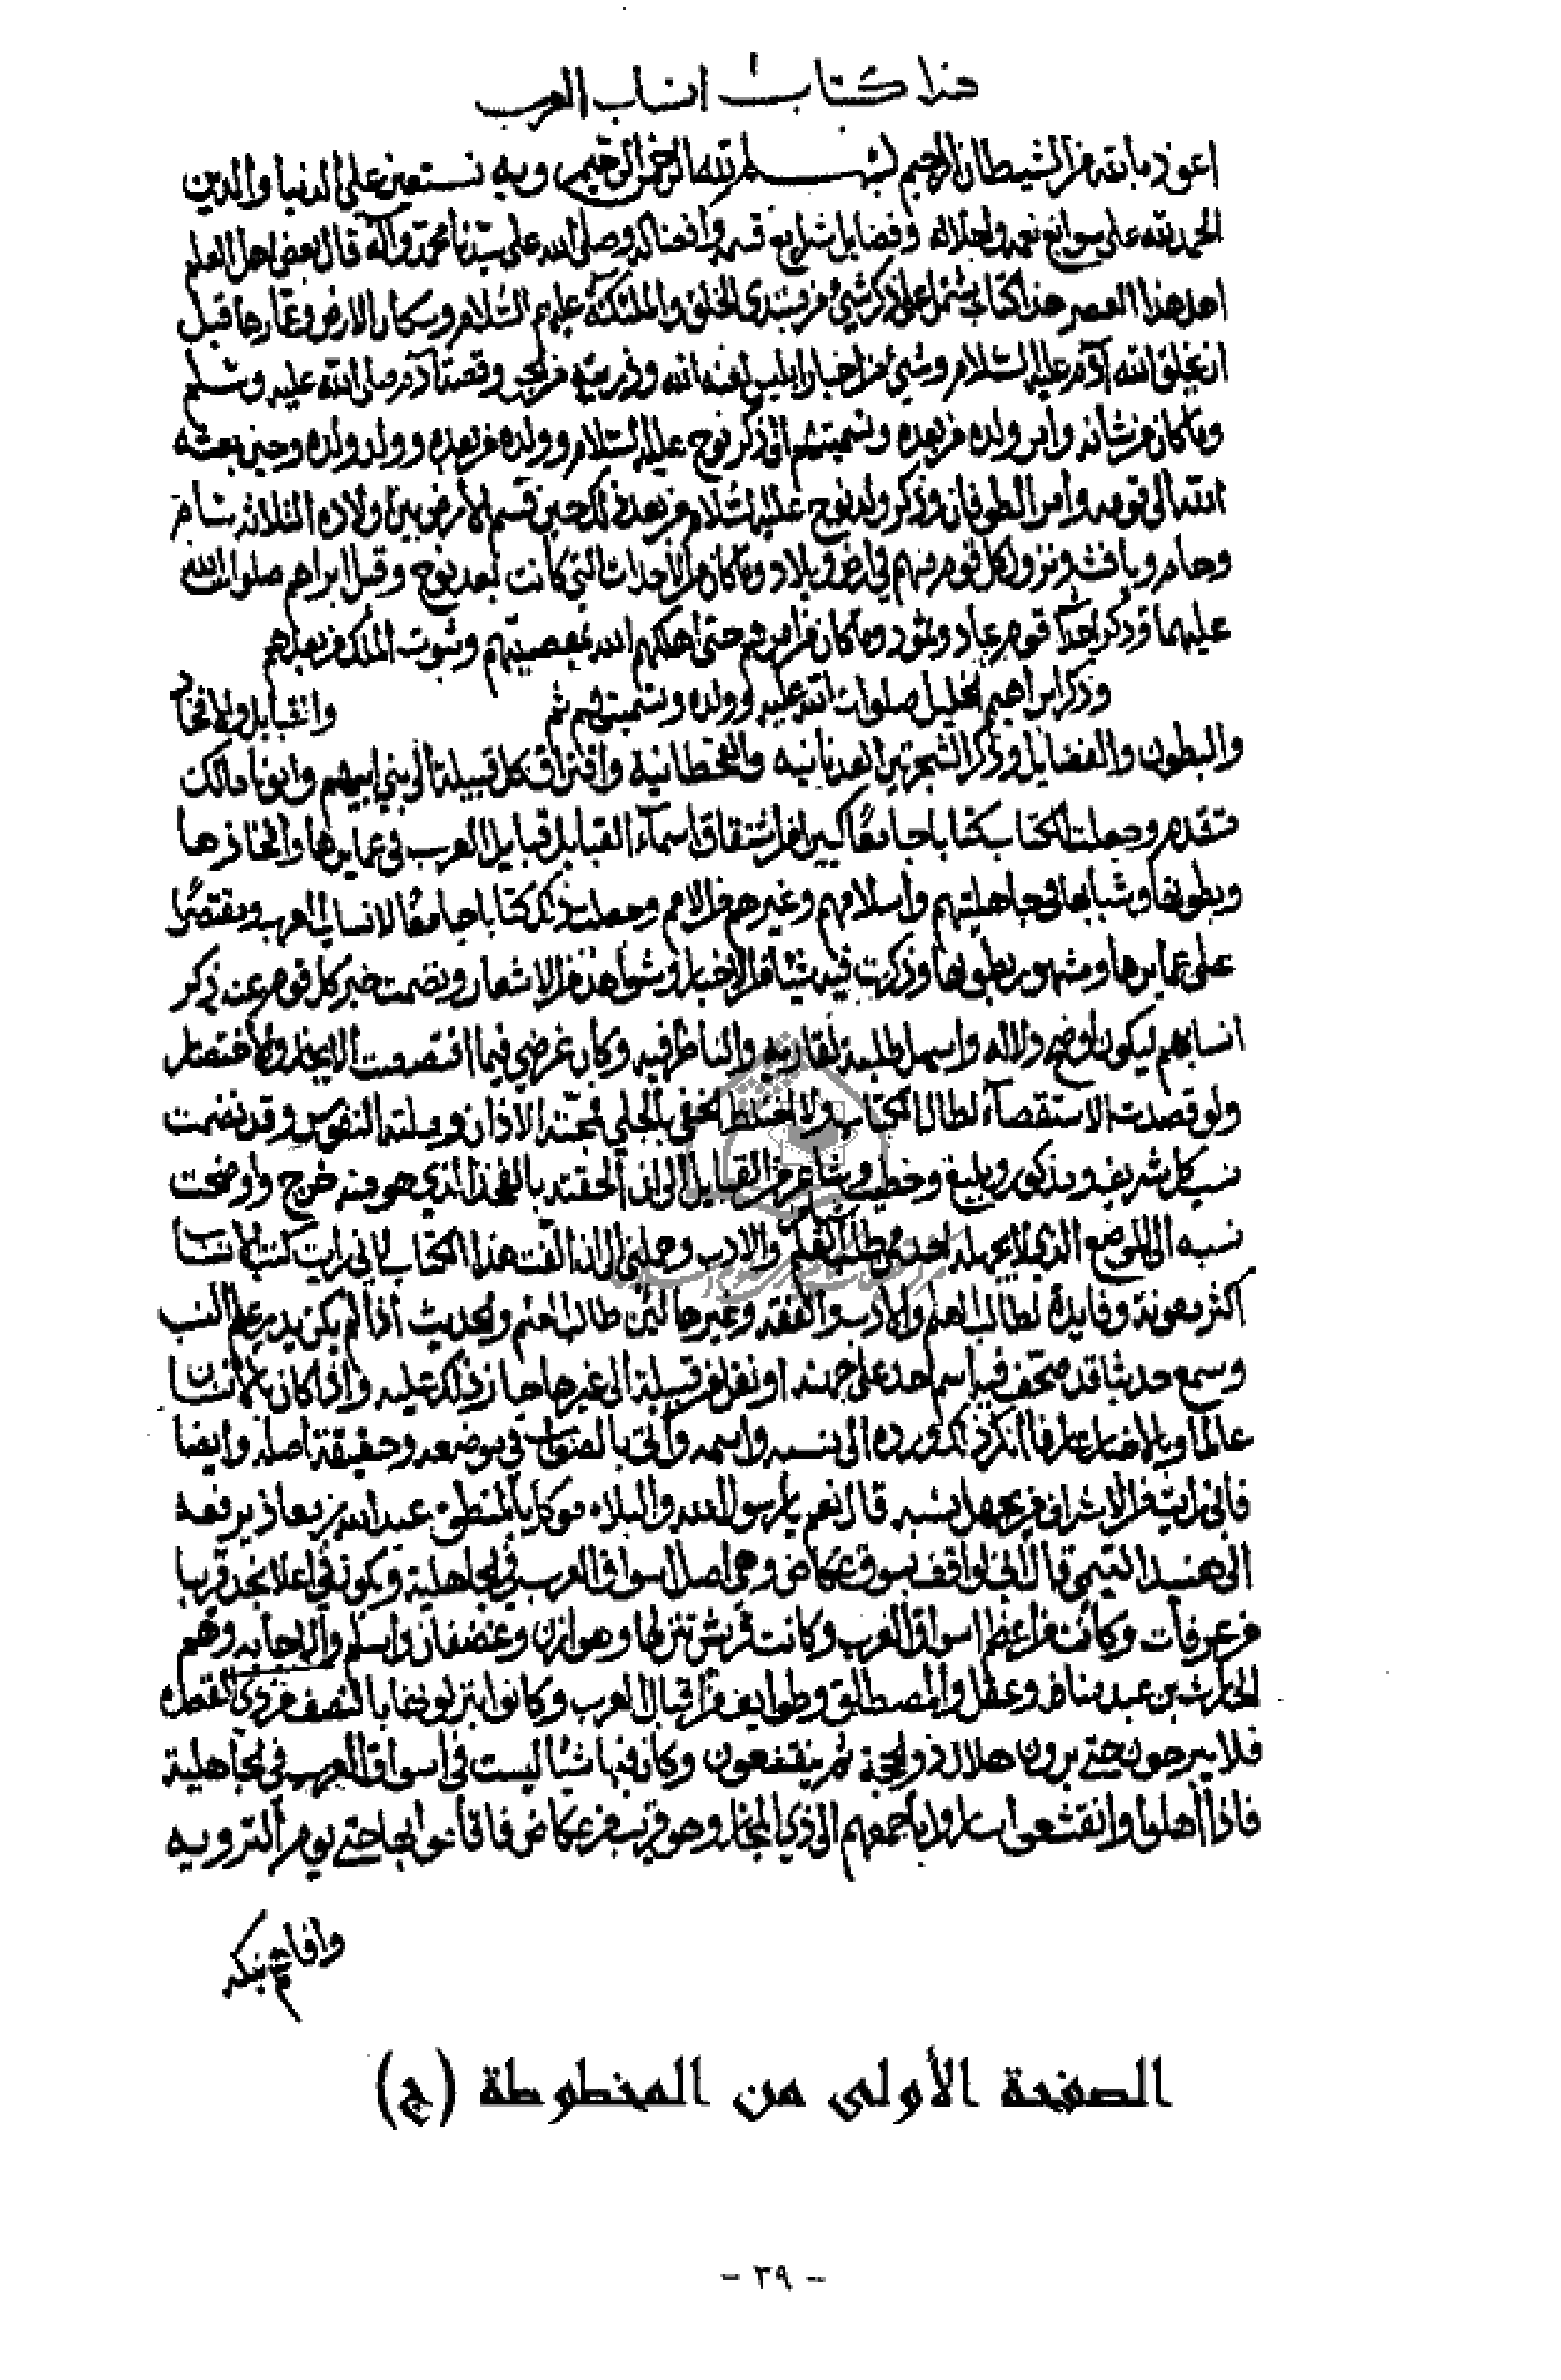 هذا كتاب انساب العرب
اعوذ بالله من الشيطان الرجيم بسم الله الرحمن الرحيم وبه نستعين على الدنيا والدين
الحمد لله على سوابغ نعمه واجلاله وفضايل شرايع قسمه وافضاله وصلى الله على سيدنا محمد وآله قال بعض اهل العلم
اهل هذا العصر هذا كتاب يشتمل على ذكر شيء من مبتدى الخلق والملئكة عليهم السلام وسكان الارض وعمارها قبل
ان يخلق الله آدم عليه السلام وشيء من اخبار ابليس لعنه الله وذريته من الجن وقصة آدم صلى الله عليه وسلم
وما كان من شانه وامر ولده من بعده وتسميتهم الى ذكر نوح عليه السلام وولده من بعده وولد ولده وحين بعثه
الله الى قومه وامر الطوفان وذكر ولد نوح عليه السلام من بعد ذلك حين قسم الارض بين اولاده الثلاثة سام
وحام ويافث ونزول كل قوم منهم في ارض وبلاد وما كان من الأحداث التي كانت بعد نوح وقبل ابراهيم صلوات الله
عليهما وذكر قوم عاد وثمود وما كان من امرهم حتى اهلكهم الله بمعصيتهم وثبوت الملك من بعدهم
وذكر ابراهيم الخليل صلوات الله عليه وولده وتسميتهم ثم والقبايل والافخاذ
والبطون والفضايل وذكر الشجرتين العدنانيه والقحطانية وافتراق كل قبيلة الى بني ابيهم وابونا مالك
تقدم وجعلت الكتاب كتابا جامعًا كبيرا من اشتقاق اسمآء القبايل قبايل العرب في عمايرها وافخاذها
وبطونها وشبابها في جاهليتهم واسلامهم وغيرهم من الامم وجعلت ذلك كتابا جامعًا لانساب العرب ومقتصرًا
على عمايرها ومشهور بطونها وذكرت فيه شيئا من الاخبار وشواهد من الاشعار ونضمت خبر كل قوم عند ذكر
انسابهم ليكون اوضح دلاله واسهل طلبة لقاريه والناظر فيه وكان غرضي فيما اقتصصت الايجاز والاختصار
ولو قصدت الاستقصآء لطال الكتاب ولا اختلط الخفي بالجلي فمجته الاذان وملته النفوس وقد نضمت
نسب كل شريف ومذكور وبليغ وخطيب وشاعر من القبايل الى ان الحقته بالفخذ الذي هو منه خرج واوضحت
نسبه الى الموضع الذي لا يجهله احد من طلب العلم والادب وحملني الى ان الفت هذا الكتاب لاني رايت كتب الانساب
اكثر معونة وفايدة لطالب العلم والادب والفقه وغيرها لئن طالب العلم والحديث اذا لم يكن يدر علم النسب
وسمع حديثا قد صحّف فيه اسم احد على جهته او نقل من قبيلة الى غيرها جاز ذلك عليه واذا كان بالانساب
عالما وبالاخبار عارفا انكر ذلك ورده الى نسبه واسمه وأتى بالصواب في موضعه وحقيقة اصله وايضا
فاني رايت من الاشراف من يجهل نسبه قال نعم يا رسول الله والبلاء موكل بالمنطق عبد الله بن معاذ يرفعه
الى هنيد التيمي قال اني لواقف بسوق عكاض وهي اصل اسواق العرب في الجاهلية ويكون في اعلا نجد قريبا
من عرفات وكانت من اعظم اسواق العرب وكانت قريش تنزلها وهوازن وغضفان واسلم والاحابيه وهم
الحارث بن عبد مناف وعضل والمصطلق وطوايف من اقبال العرب وكانوا ينزلونها بالنصف من ذي القعدة
فلا يبرحون حتى يرون هلال ذو الحجة ثم ينقشعون وكان فيها شيئا ليست في اسواق العرب في الجاهلية
فاذا أهلوا وانقشعوا ساروا باجمعهم الى ذي المجاز وهو قريب من عكاض فاقاموا بها حتى يوم التروية
الصفحة الأولى من المخطوطة (ج)
- ٣٩ -